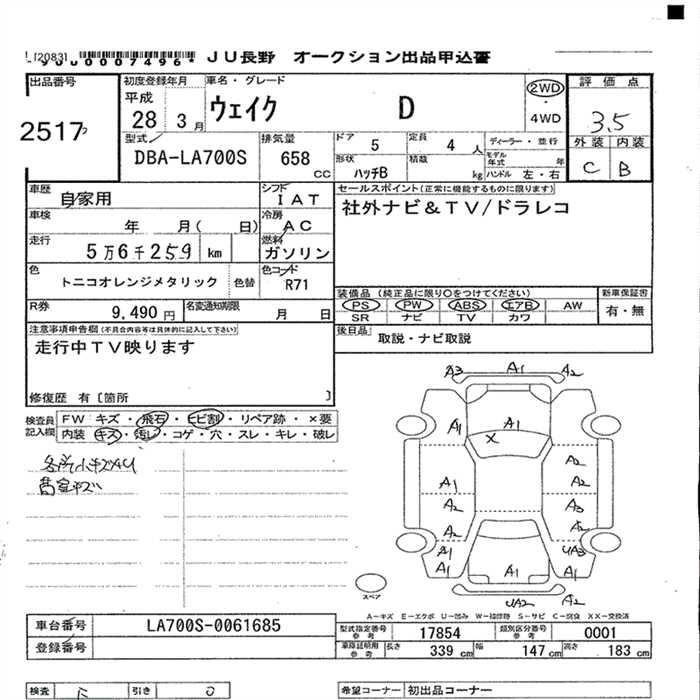 [2083]
*9000007496*
JU長野 オークション出品申込書
出品番号
2517
初度登録年月
平成
28 3月
車名・グレード
ウェイク D
2WD
・
4WD
評価点
3.5
外装 内装
C B
型式
DBA-LA700S
排気量
658
CC
ドア 5
定員 4 人
形状 ハッチB
積載 kg
ディーラー・並行
モデル年式 年
ハンドル 左・右
車歴
自家用
シフト
IAT
車検
年 月( 日)
冷房
AC
走行
5万6千259 km
燃料
ガソリン
色
トニコオレンジメタリック
色替
色コード
R71
R券
9,490円
名変通知期限
月 日
セールスポイント(正常に機能するものに限ります)
社外ナビ&TV/ドラレコ
装備品(純正品に限り○をつけてください)
PS PW ABS エアB AW
SR ナビ TV カワ
新車保証書
有・無
後日品
取説・ナビ取説
注意事項申告欄(不具合内容等は具体的に記入して下さい)
走行中TV映ります
修復歴 有[箇所 ]
検査員記入欄
FW キズ・飛石・ヒビ割・リペア跡・×要
内装・キズ・汚レ・コゲ・穴・スレ・キレ・破レ
各所小キズAU
A3 A1 A2
A1 X A1
A2
A1 A2
A2 A3
A2 A2
A1 UA3
A2 A1 A1
UA2 A2
スペア
A-キズ E-エクボ U-凹み W-補修跡 S-サビ C-腐食 XX-交換済
車台番号
LA700S-0061685
登録番号
型式指定番号
参考
17854
類別区分番号
参考
0001
車庫証明用
参考
長さ 339 cm
幅 147 cm
高さ 183 cm
検査
引き
希望コーナー
初出品コーナー